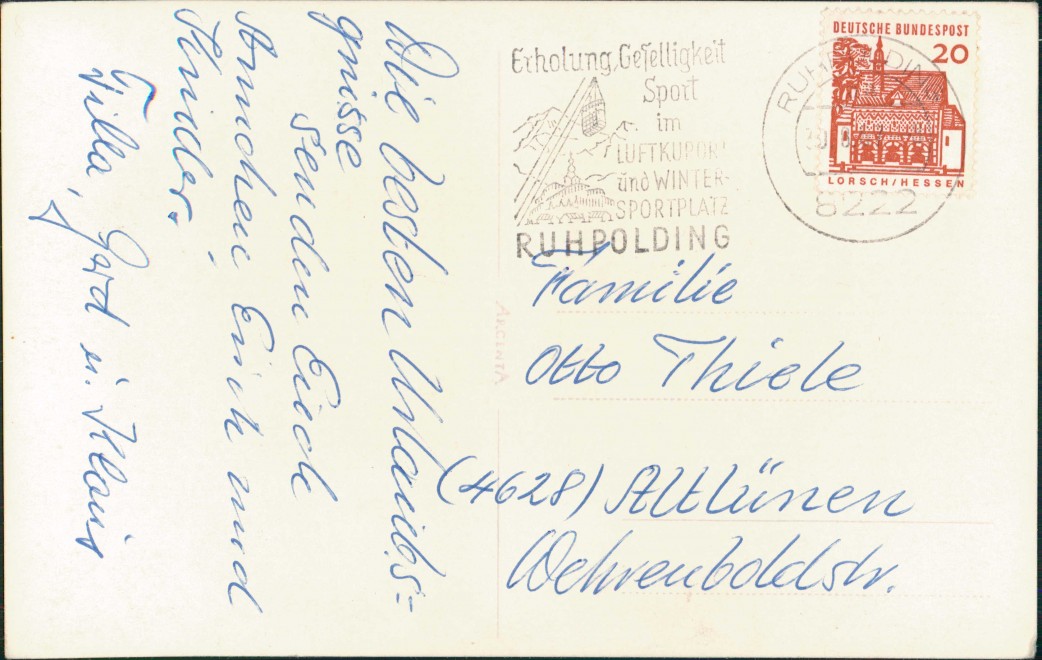 Die besten Urlaubs=
grüsse
senden Euch
Annchen, Erich und
Kinder.
Tilla, Gerd u. Klaus
Erholung, Geselligkeit
Sport
im
LUFTKURORT
und WINTER-
SPORTPLATZ
RUHPOLDING
RUHPOLDING
8222
DEUTSCHE BUNDESPOST
20
LORSCH/HESSEN
ARGENTA
Familie
Otto Thiele
(4628) Altlünen
Wehrenboldstr.